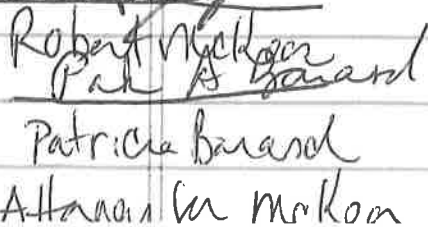 Robert McKoon
Pat A Barard
Patricia Barard
for McKoon